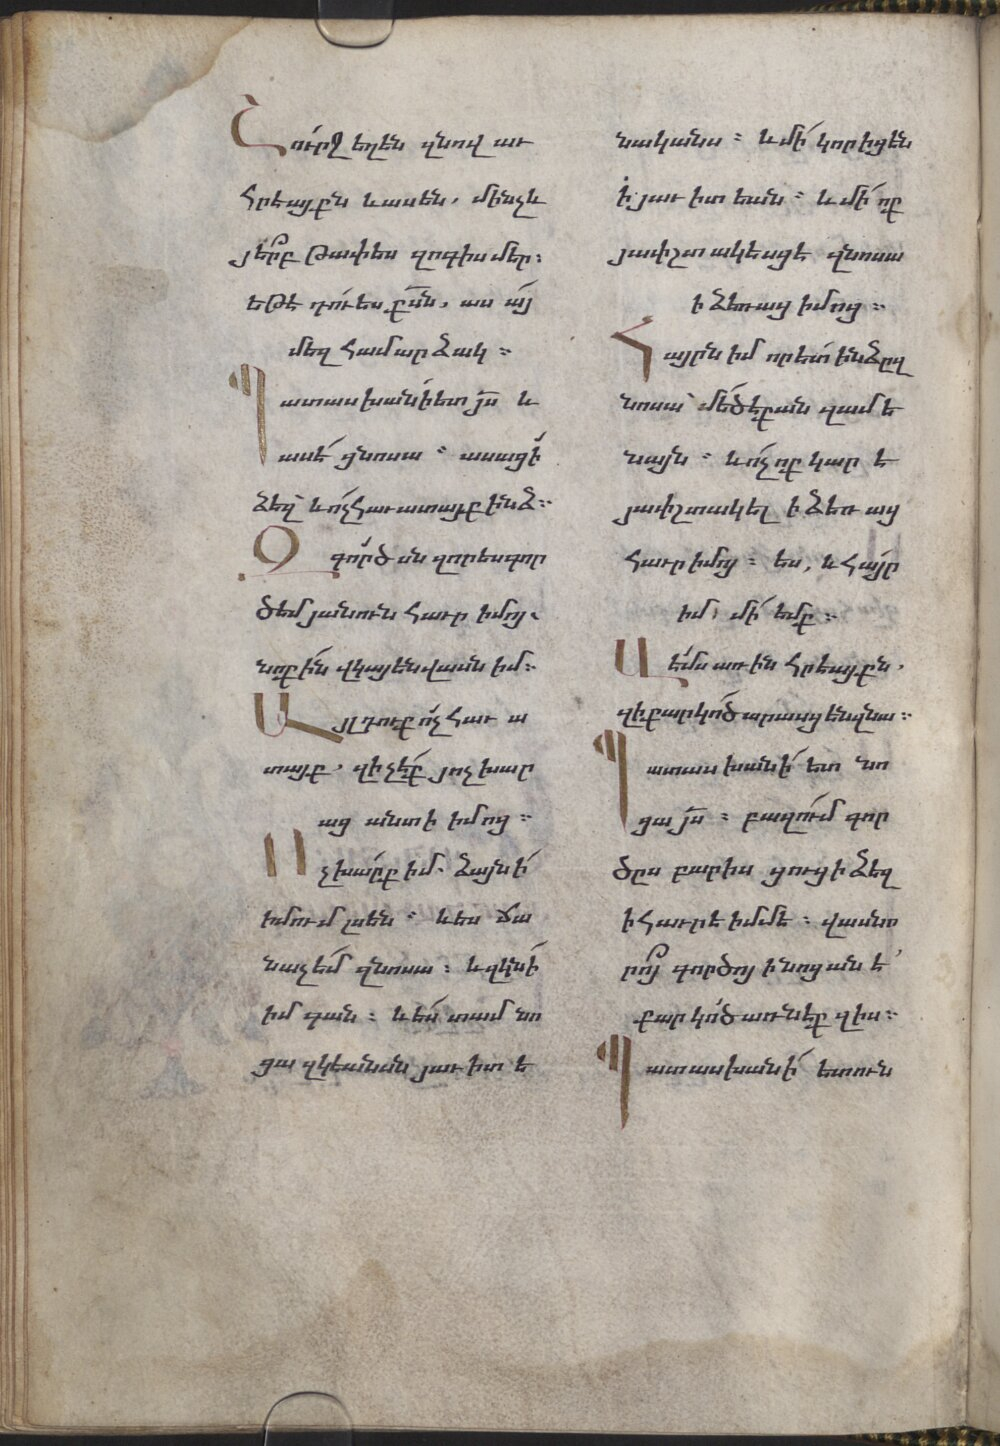 Շուրջ եղեն զնովաւ
հրեայքն և ասեն. մինչև
յերբ թափես զոգիս մեր։
եթէ դու ես քս̅ն. աս ա՛յ
մեզ համարձակ։
Պատասխանի ետ յս̅ և
ասէ ցնոսա։ ասացի
ձեզ՝ և ոչ հաւատայք ինձ։
Զգործսն զոր ես գոր
ծեմ յանուն հաւր իմոյ.
նոքին վկայեն վասն իմ։
Այլ դուք ոչ հաւա
տայք. զի չէք յոչխար
աց անտի իմոց։
Ոչխարք իմ. ձայնի
իմում լսեն։ և ես ճա
նաչեմ զնոսա։ և զկնի
իմ գան։ և ես տամ նո
ցա զկեանսն յաւիտե
նականս։ և մի կորիցեն
ի յաւիտեան։ և մի ոք
յափշտակեսցէ զնոսա
ի ձեռաց իմոց։
Հայրն իմ որ ետ ինձ զ
նոսա՝ մեծ է քան զամե
նայն։ և ոչ ոք կարէ
յափշտակել ի ձեռաց
հաւր իմոյ։ ես, և հայր
իմ՝ մի եմք։
Առին հրեայքն.
զի քարկոծ արասցեն զնա։
Պատասխանի ետ նո
ցա յս̅։ բազում գոր
ծըս բարիս ցուցի ձեզ
ի հաւրէ իմմէ։ վասն ո
րոյ գործոյ ի նոցանէ՝
քարկոծ առնէք զիս։
Պատասխանի ետուն